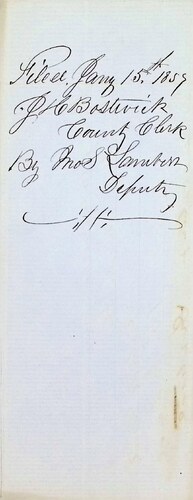 Filed Jany 15.th 1857
J H Bostwick
Count Clerk
By Jno S Lambert
Deputy